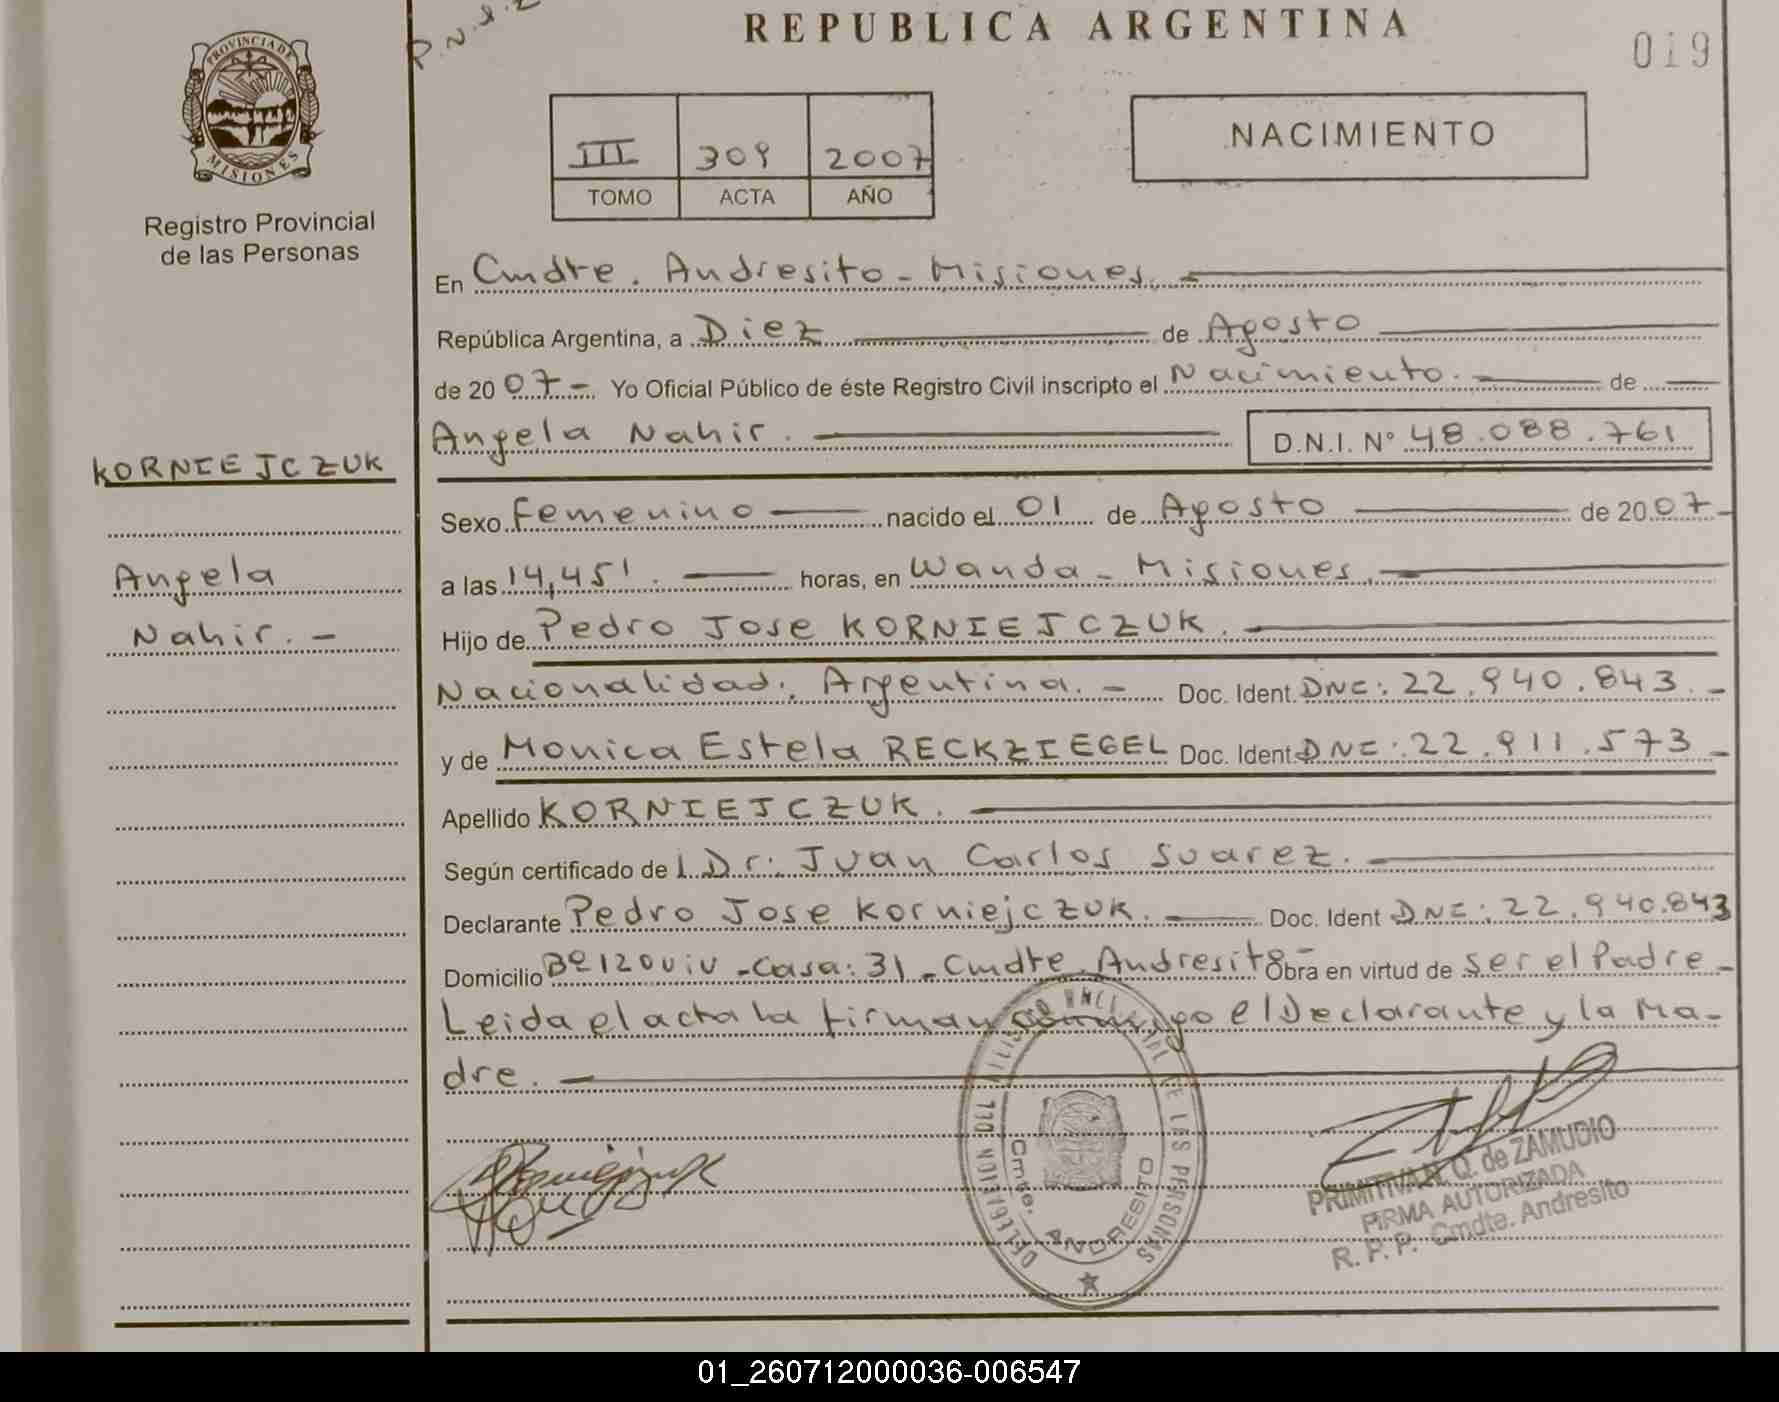 P.N.S.Z
REPUBLICA ARGENTINA
019
PROVINCIA DE
MISIONES
Registro Provincial
de las Personas
III 309 2007
TOMO ACTA AÑO
NACIMIENTO
En Cmdte. Andresito - Misiones. -
República Argentina, a Diez de Agosto
de 2007 - Yo Oficial Público de éste Registro Civil inscripto el Nacimiento. - de -
Angela Nahir. - D.N.I. N° 48.088.761
KORNIEJCZUK
Angela
Nahir. -
Sexo Femenino - nacido el 01 de Agosto de 2007 -
a las 14,45'. - horas, en Wanda - Misiones. -
Hijo de Pedro Jose KORNIEJCZUK. -
Nacionalidad: Argentina. - Doc. Ident. DNI: 22.940.843. -
y de Monica Estela RECKZIEGEL Doc. Ident DNI: 22.911.573 -
Apellido KORNIEJCZUK. -
Según certificado de l Dr: Juan Carlos Suarez. -
Declarante Pedro Jose Korniejczuk. - Doc. Ident DNI: 22.940.843
Domicilio Bº 120 viv - Casa: 31 - Cmdte. Andresito - Obra en virtud de ser el Padre -
Leida el acta la firman conmigo el Declarante y la Ma-
dre. -
DELEGACION DEL REGISTRO PROVINCIAL DE LAS PERSONAS
Cmte. ANDRESITO
PRIMITIVA N. Q. de ZAMUDIO
FIRMA AUTORIZADA
R. P. P. Cmdte. Andresito
01_260712000036-006547